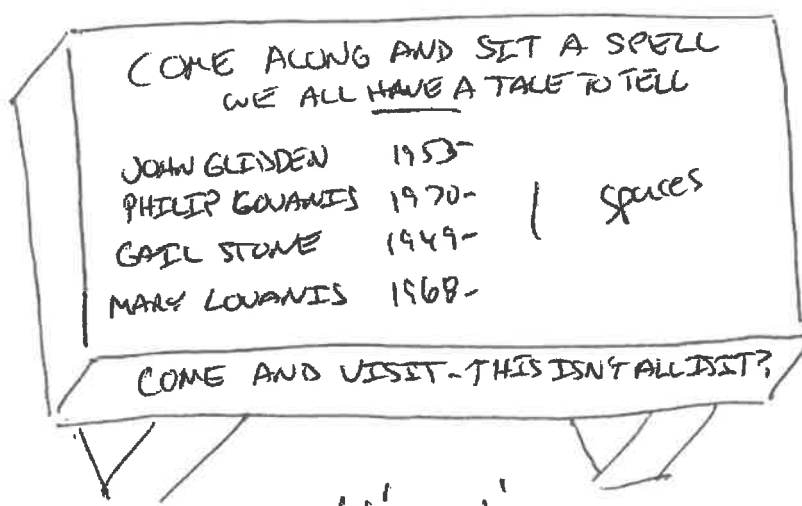 COME ALONG AND SIT A SPELL
WE ALL HAVE A TALE TO TELL
JOHN GLIDDEN 1953-
PHILIP GOUANIS 1970-
GAIL STONE 1949-
MARY LOUANIS 1968-
spaces
COME AND VISIT - THIS ISN'T ALL IS IT?